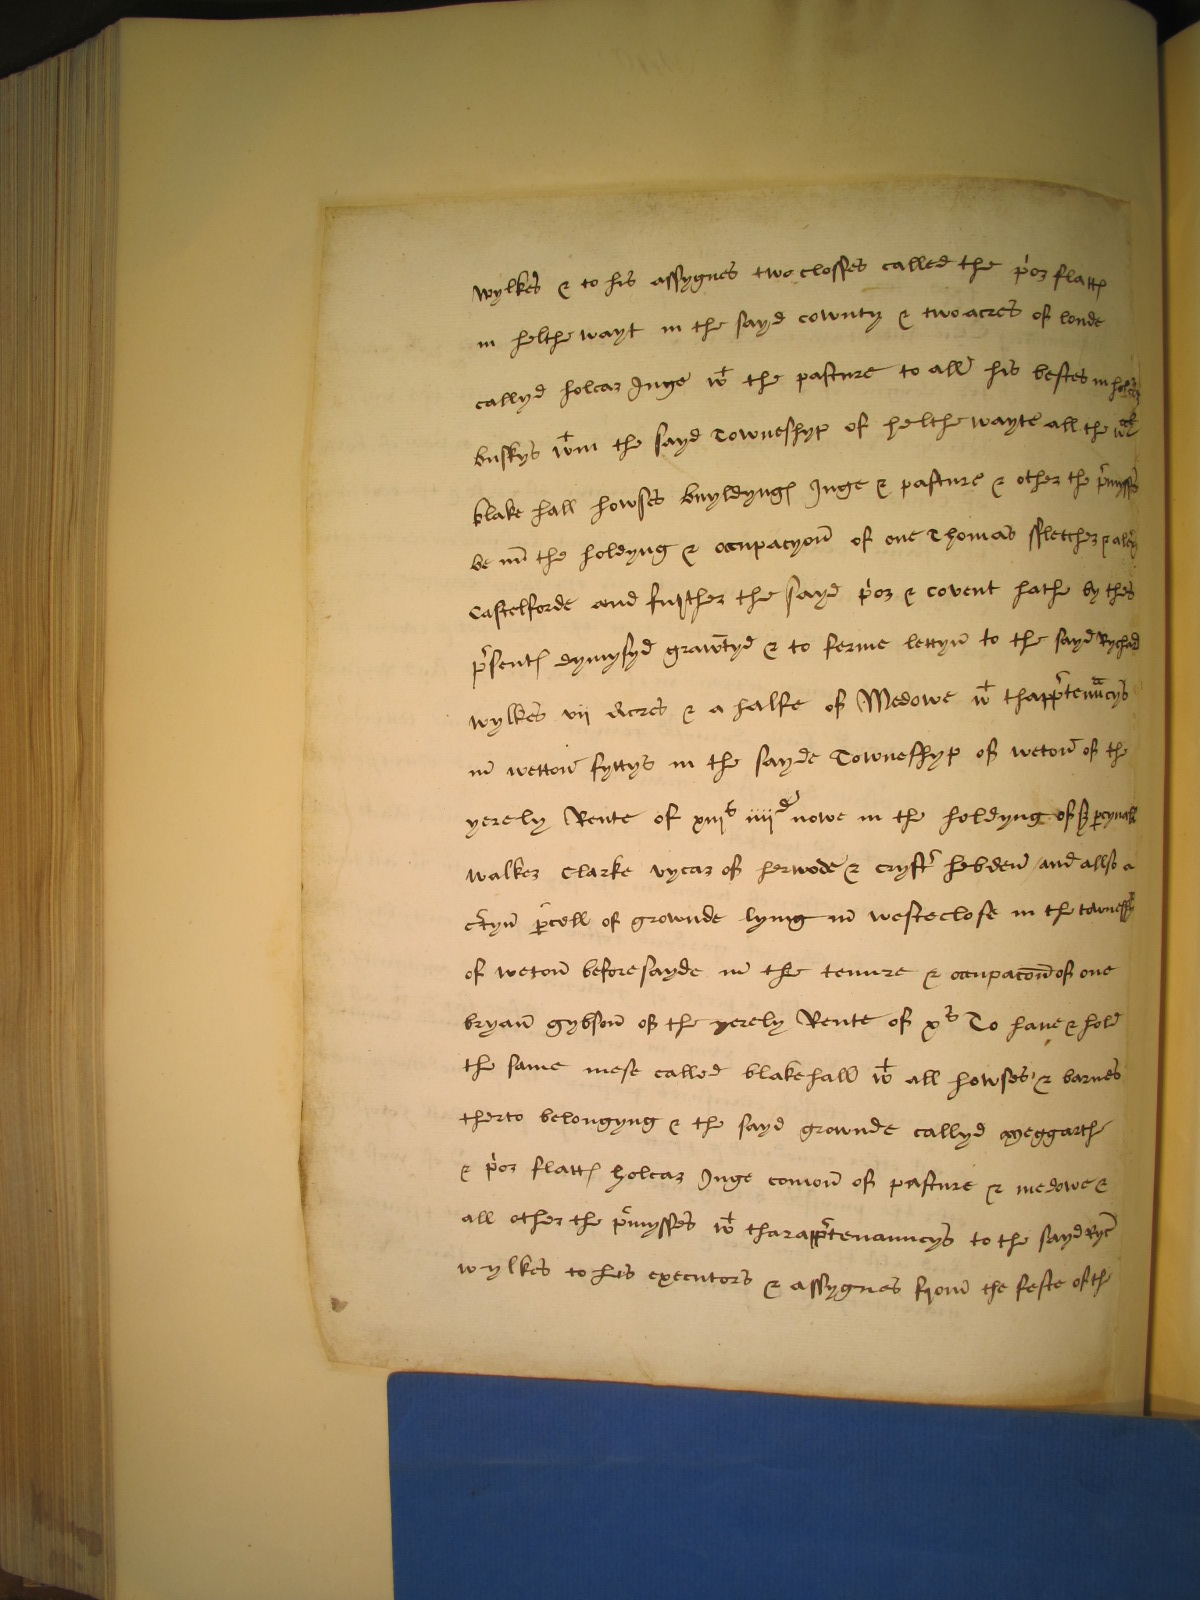 wylkes & to his assygnes two closses called the p'or flatt
in helthewayt in the sayd cowntey & two acres of londe
callyd holcar Inge wt the pasture to all his bestes in
buskys wtin the sayd Towneshyp of helthewayte all the
blake hall howses buyldyng Inge & pasture & other the p'mysses
be in the holdyng & occupacyon of one Thomas ffletcher
Castelforde and further the sayd p'or & covent hathe by thes
p'sent dymysyd grawntyd & to ferme lettyn to the sayd Rychard
wylkes vij Acres & a halfe of Medowe wt thapp'tenancys
in wetton syttys in the sayde Towneshyp of weton of the
yerely Rente of xiijs iiijd nowe in the holdyng of
walker Clarke vycar of herwode & crystr hebden and allso a
c'teyn p'cell of grownde lying in westeclose in the towneshyp
of weton beforesayde in the tenure & occupacon of one
bryan gybson of the yerely Rente of xs To have & hold
the same mese called blakehall wt all howses & barnes
therto belongyng & the sayd grownde callyd meggarthe
& p'or flatt holcar Inge comon of pasture & medowe &
all other the p'mysses wt tharapp'tenanncys to the sayd Ryc
wylkes to his executors & assygnes from the feste of the